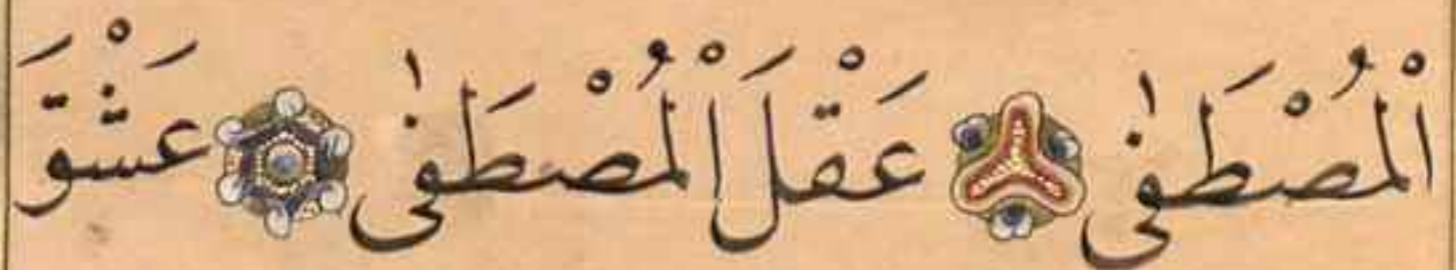 اْلمُصْطَفٰى عَقْلَ اْلمُصْطَفٰى عَشْقَ